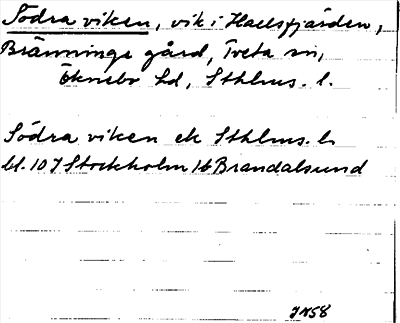 Södra viken, vik i Hallsfjärden,
Bränninge gård, Tveta sn,
Öknebo hd, Sthlms. l.
Södra viken ek Sthlms. l.
bl. 10 I Stockholm 1b Brandalsund
IN58